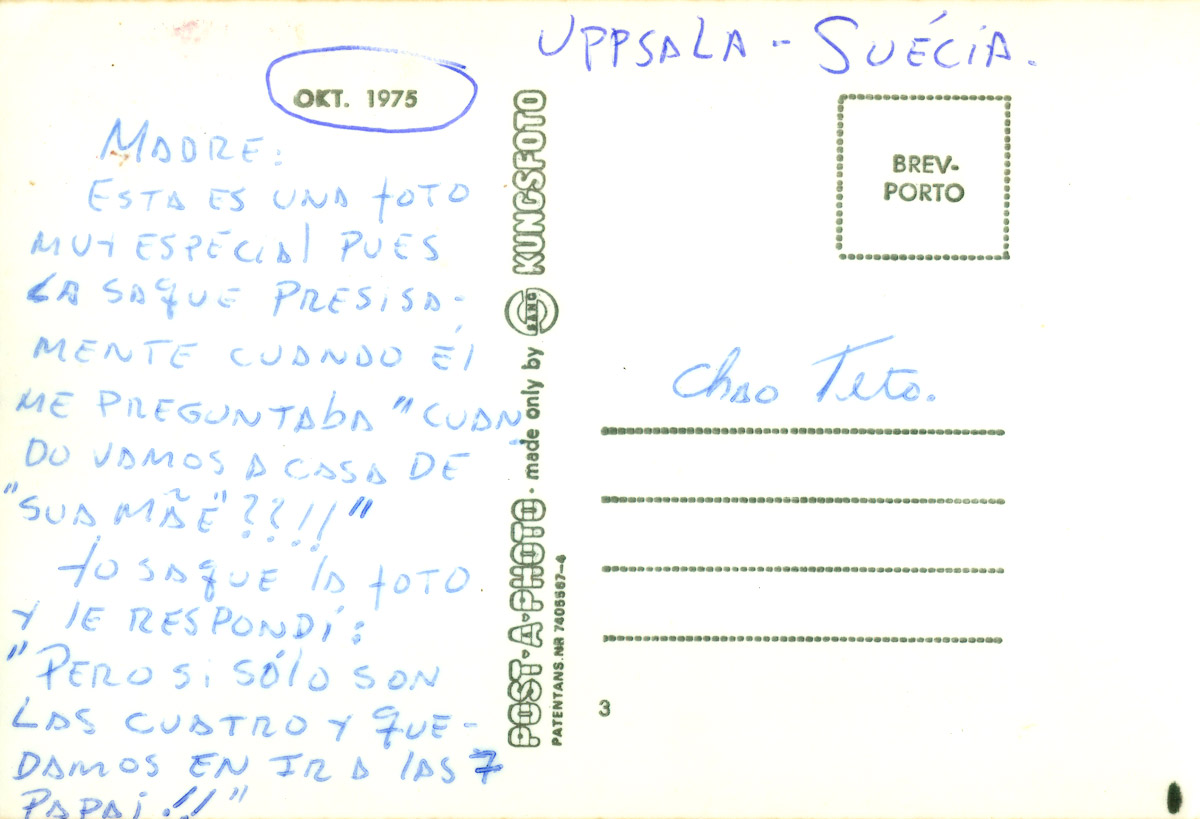 UPPSALA - SUÉCIA.
OKT. 1975
MADRE:
ESTA ES UNA FOTO
MUY ESPECIAL PUES
LA SAQUE PRESISA-
MENTE CUANDO ÉL
ME PREGUNTABA "CUAN
DO VAMOS A CASA DE
"SUA MÃE"??!!"
YO SAQUE LA FOTO
Y LE RESPONDÍ:
"PERO SI SÓLO SON
LAS CUATRO Y QUE-
DAMOS EN IR A LAS 7
PAPAI!!"
POST-A-PHOTO · made only by SANG KUNGSFOTO
PATENTANS.NR 7406667-4
BREV-
PORTO
Chao Teto.
3